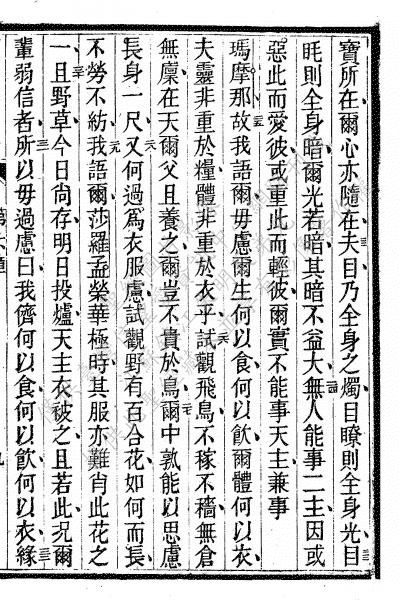 寶所在爾心亦隨在夫目乃全身之燭目瞭則全身光目
眊則全身暗爾光若暗其暗不益大無人能事二主因或
惡此而愛彼或重此而輕彼爾實不能事天主兼事
瑪摩那故我語爾毋慮爾生何以食何以飲爾體何以衣
夫靈非重於糧體非重於衣乎試觀飛鳥不稼不穡無倉
無廩在天爾父且養之爾豈不貴於鳥爾中孰能以思慮
長身一尺又何過爲衣服慮試觀野有百合花如何而長
不勞不紡我語爾莎羅孟榮華極時其服亦難肖此花之
一且野草今日尚存明日投爐天主衣被之且若此况爾
輩弱信者所以毋過慮曰我儕何以食何以飲何以衣緣